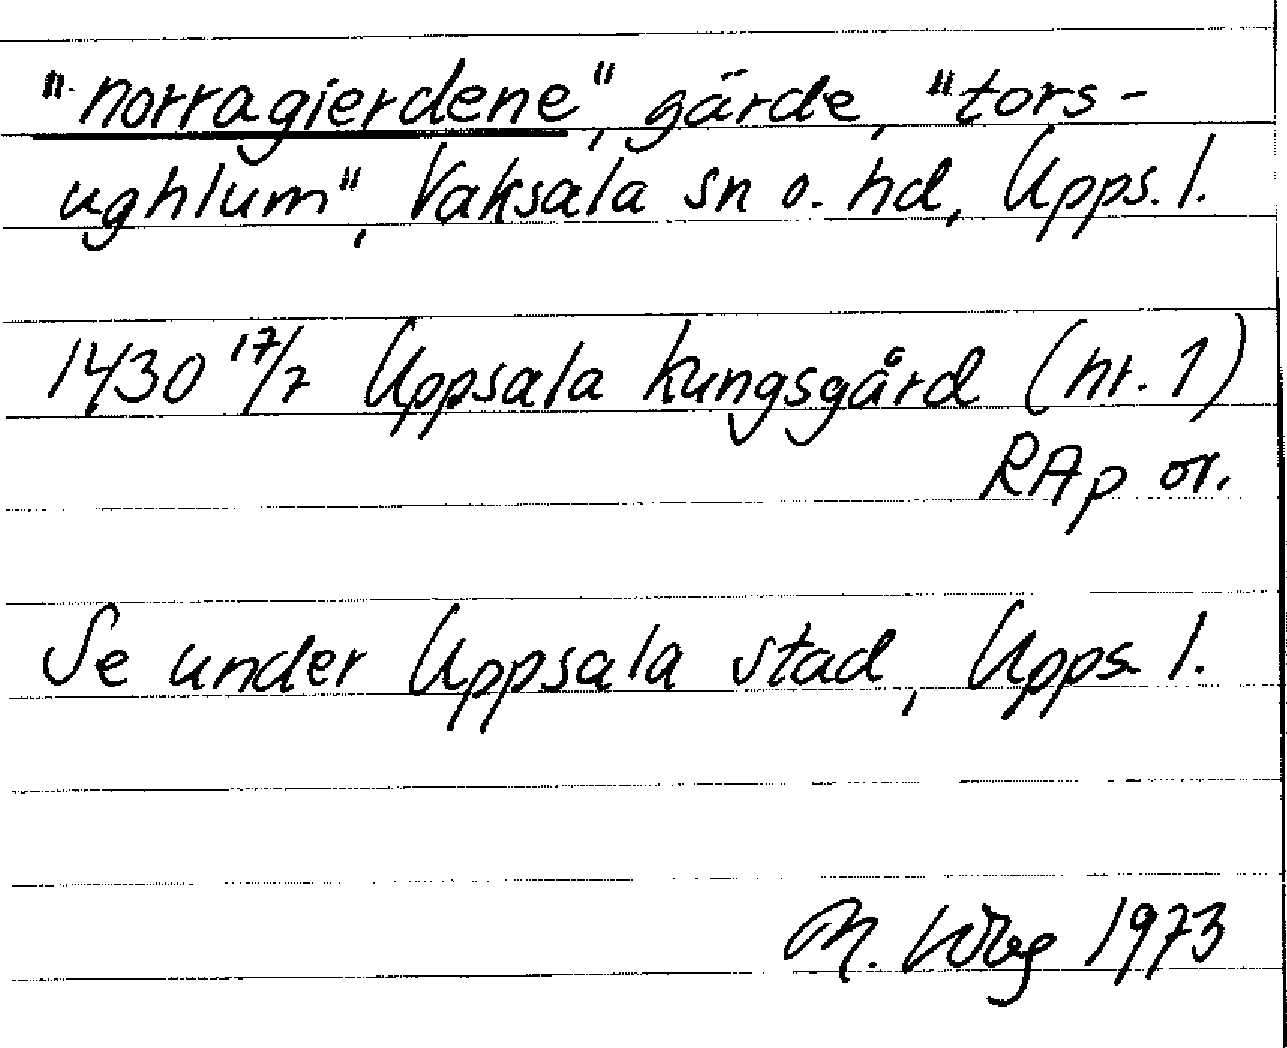 "norragierdene", gärde, "tors-
ughlum", Vaksala sn o. hd, Upps. l.
1430 17/7 Uppsala kungsgård (nr. 1)
RAp or.
Se under Uppsala stad, Upps. l.
M. 1973